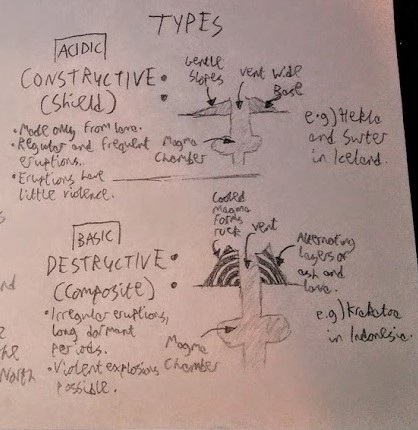 TYPES
ACIDIC
CONSTRUCTIVE:
(Shield)
• Made only from lava.
• Regular and frequent
eruptions.
• Eruptions have
little violence.
Gentle
Slopes
vent
Wide
Base
Magma
Chamber
e.g) Hekla
and Surter
in Iceland.
BASIC
DESTRUCTIVE:
(Composite)
• Irregular eruptions,
long dormant
periods.
• Violent explosions
possible.
Cooled
Magma
Forms
rock
vent
Alternating
layers or
ash and
lava.
Magma
Chamber
e.g) Krakatoa
in Indonesia.
North